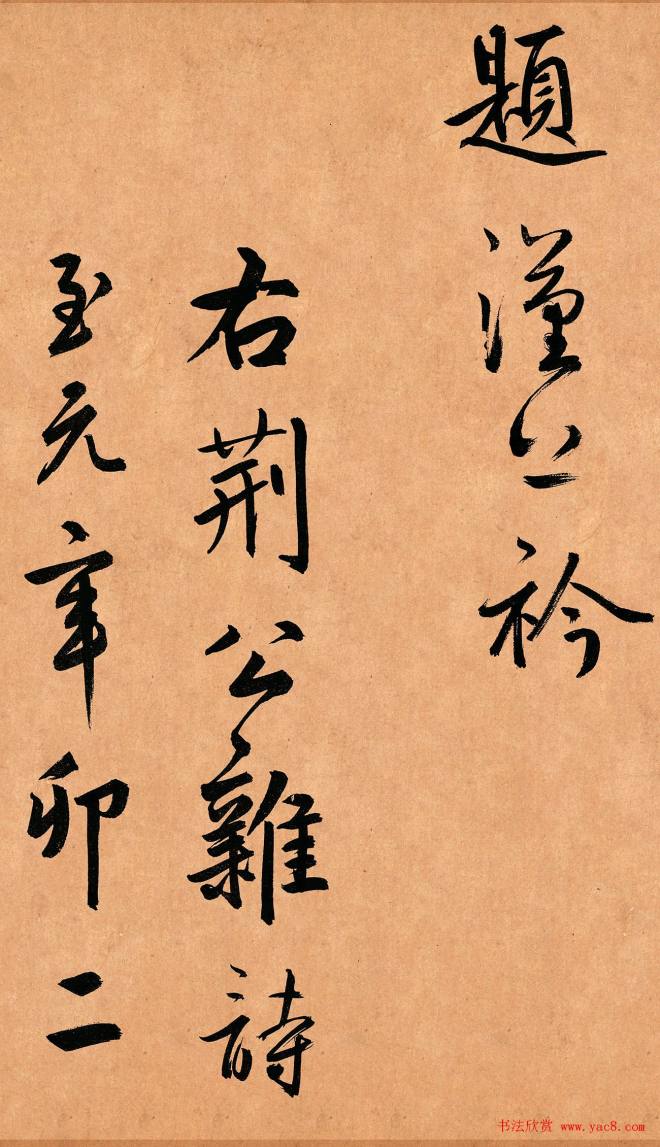 題上衿
右荆公雜詩
至元辛卯二
书法欣赏 www.yac8.com